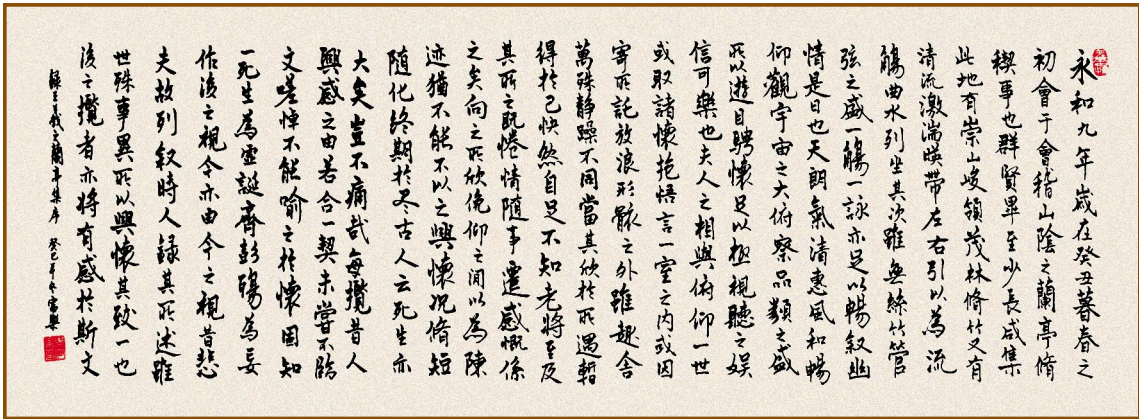 永和九年歲在癸丑暮春之
初會于會稽山陰之蘭亭脩
稧事也群賢畢至少長咸集
此地有崇山峻領茂林脩竹又有
清流激湍暎帶左右引以為流
觴曲水列坐其次雖無絲竹管
弦之盛一觴一詠亦足以暢叙幽
情是日也天朗氣清惠風和暢
仰觀宇宙之大俯察品類之盛
所以遊目騁懷足以極視聽之娛
信可樂也夫人之相與俯仰一世
或取諸懷抱悟言一室之內或因
寄所託放浪形骸之外雖趣舍
萬殊静躁不同當其欣於所遇暫
得於己快然自足不知老將至及
其所之既惓情隨事遷感慨係
之矣向之所欣俛仰之閒以為陳
迹猶不能不以之興懷況脩短
隨化終期於盡古人云死生亦
大矣豈不痛哉每攬昔人
興感之由若合一契未嘗不臨
文嗟悼不能喻之於懷固知
一死生為虛誕齊彭殤為妄
作後之視今亦由今之視昔悲
夫故列叙時人錄其所述雖
世殊事異所以興懷其致一也
後之攬者亦將有感於斯文
錄王羲之蘭亭集序 癸巳年冬